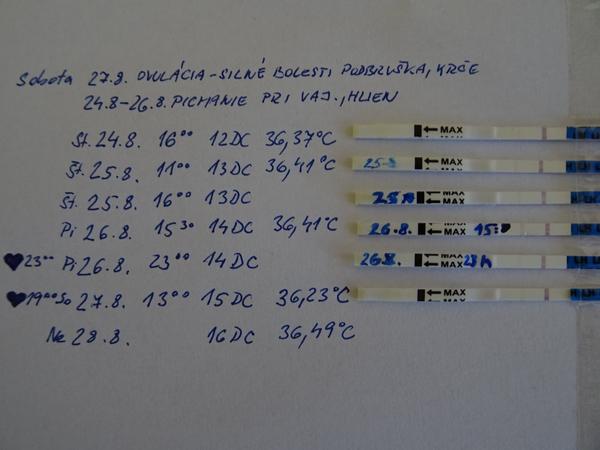 Sobota 27.8. OVULÁCIA - SILNÉ BOLESTI PODBRUŠKA, KRČE
24.8-26.8. PICHANIE PRI VAJ., HLIEN
St. 24.8. 16⁰⁰ 12DC 36,37°C
← MAX
Št. 25.8. 11⁰⁰ 13DC 36,41°C
25-8 ← MAX
Št. 25.8. 16⁰⁰ 13DC
← MAX
Pi 26.8. 15³⁰ 14DC 36,41°C
26.8. ← MAX
♥23⁰⁰ Pi 26.8. 23⁰⁰ 14DC
26.8. ← MAX 23h
♥19⁰⁰ So 27.8. 13⁰⁰ 15DC 36,23°C
← MAX
Ne 28.8. 16DC 36,49°C